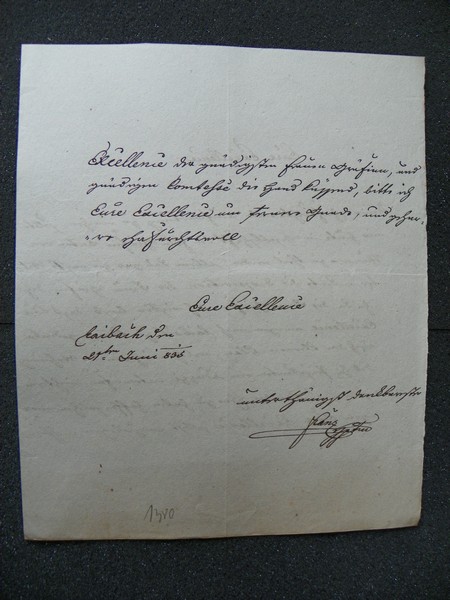 Excellenie der gnädigsten Frauen Gräfinn, und
gnädigen Komtesse die Hand küssend, bitte ich
Eure Excellenie um fernere Gnade, und gehar-
re ehrfurchtsvoll
Eure Excellenie
Laibach den
21ten Juni 835
unterthänigst dankbarster
Franz
1380